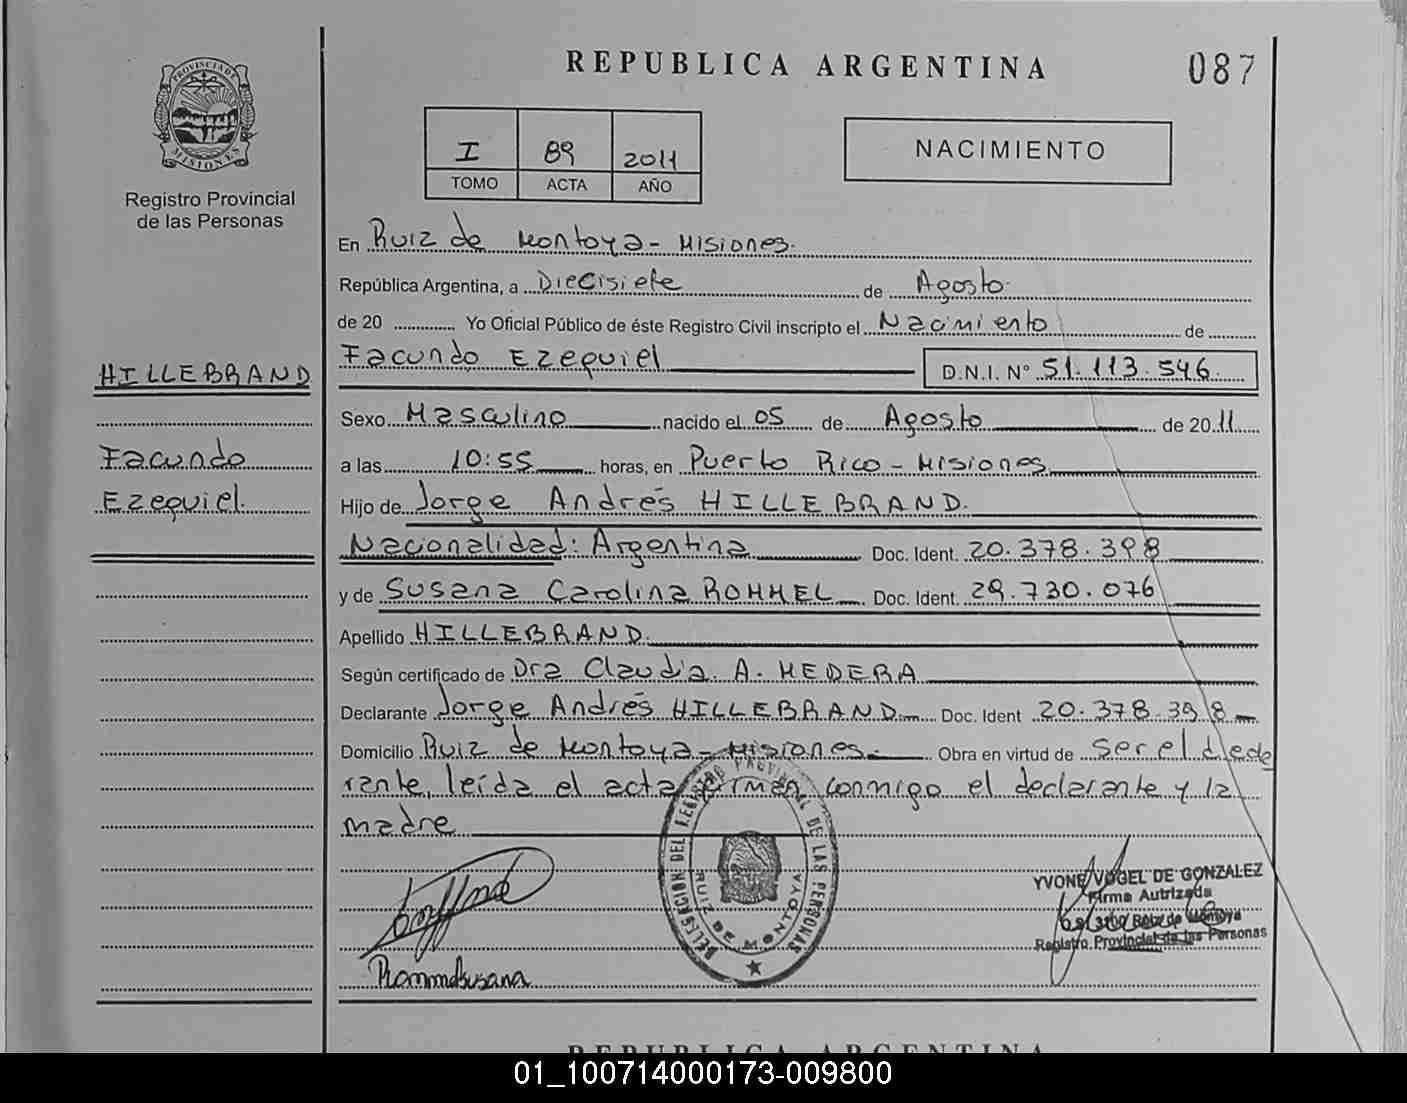 REPUBLICA ARGENTINA
087
PROVINCIA DE MISIONES
Registro Provincial
de las Personas
I 89 2011
TOMO ACTA AÑO
NACIMIENTO
En Ruiz de Montoya - Misiones.
República Argentina, a Diecisiete de Agosto
de 20 Yo Oficial Público de éste Registro Civil inscripto el Nacimiento de
Facundo Ezequiel D.N.I. N° 51.113.546.
HILLEBRAND
Facundo
Ezequiel.
Sexo Masculino nacido el 05 de Agosto de 2011
a las 10:55 horas, en Puerto Rico - Misiones
Hijo de Jorge Andrés HILLEBRAND.
Nacionalidad: Argentina Doc. Ident. 20.378.398
y de Susana Carolina ROMMEL Doc. Ident. 29.730.076
Apellido HILLEBRAND.
Según certificado de Dra Claudia. A. MEDERA
Declarante Jorge Andrés HILLEBRAND Doc. Ident 20.378.398
Domicilio Ruiz de Montoya - Misiones. Obra en virtud de ser el
rante, leída el acta firman conmigo el declarante y la
madre
DELEGACION DEL REGISTRO PROVINCIAL DE LAS PERSONAS
RUIZ DE MONTOYA
YVONE VOGEL DE GONZALEZ
Firma Autrizada
Ruiz de Montoya
Registro Provincial de las Personas
Rommel Susana
REPUBLICA ARGENTINA
01_100714000173-009800